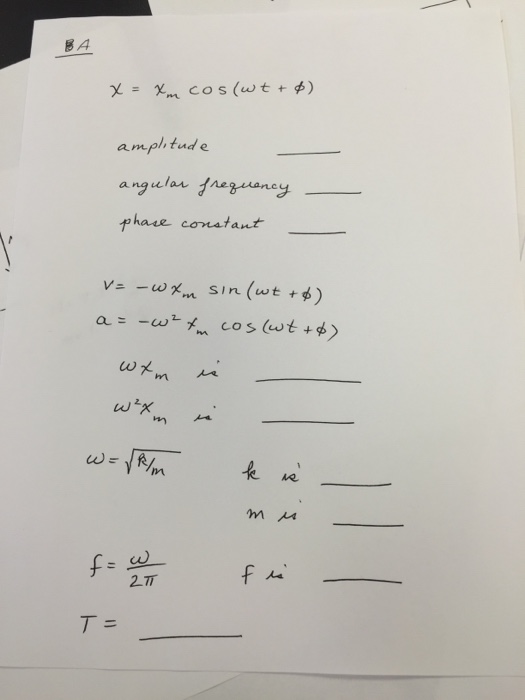 BA
x = xₘ cos(ωt + φ)
amplitude ____
angular frequency ____
phase constant ____
v = -ωxₘ sin(ωt + φ)
a = -ω²xₘ cos(ωt + φ)
ωxₘ is ____
ω²xₘ is ____
ω = √k/m k is ____
m is ____
f = ω/2π f is ____
T = ____